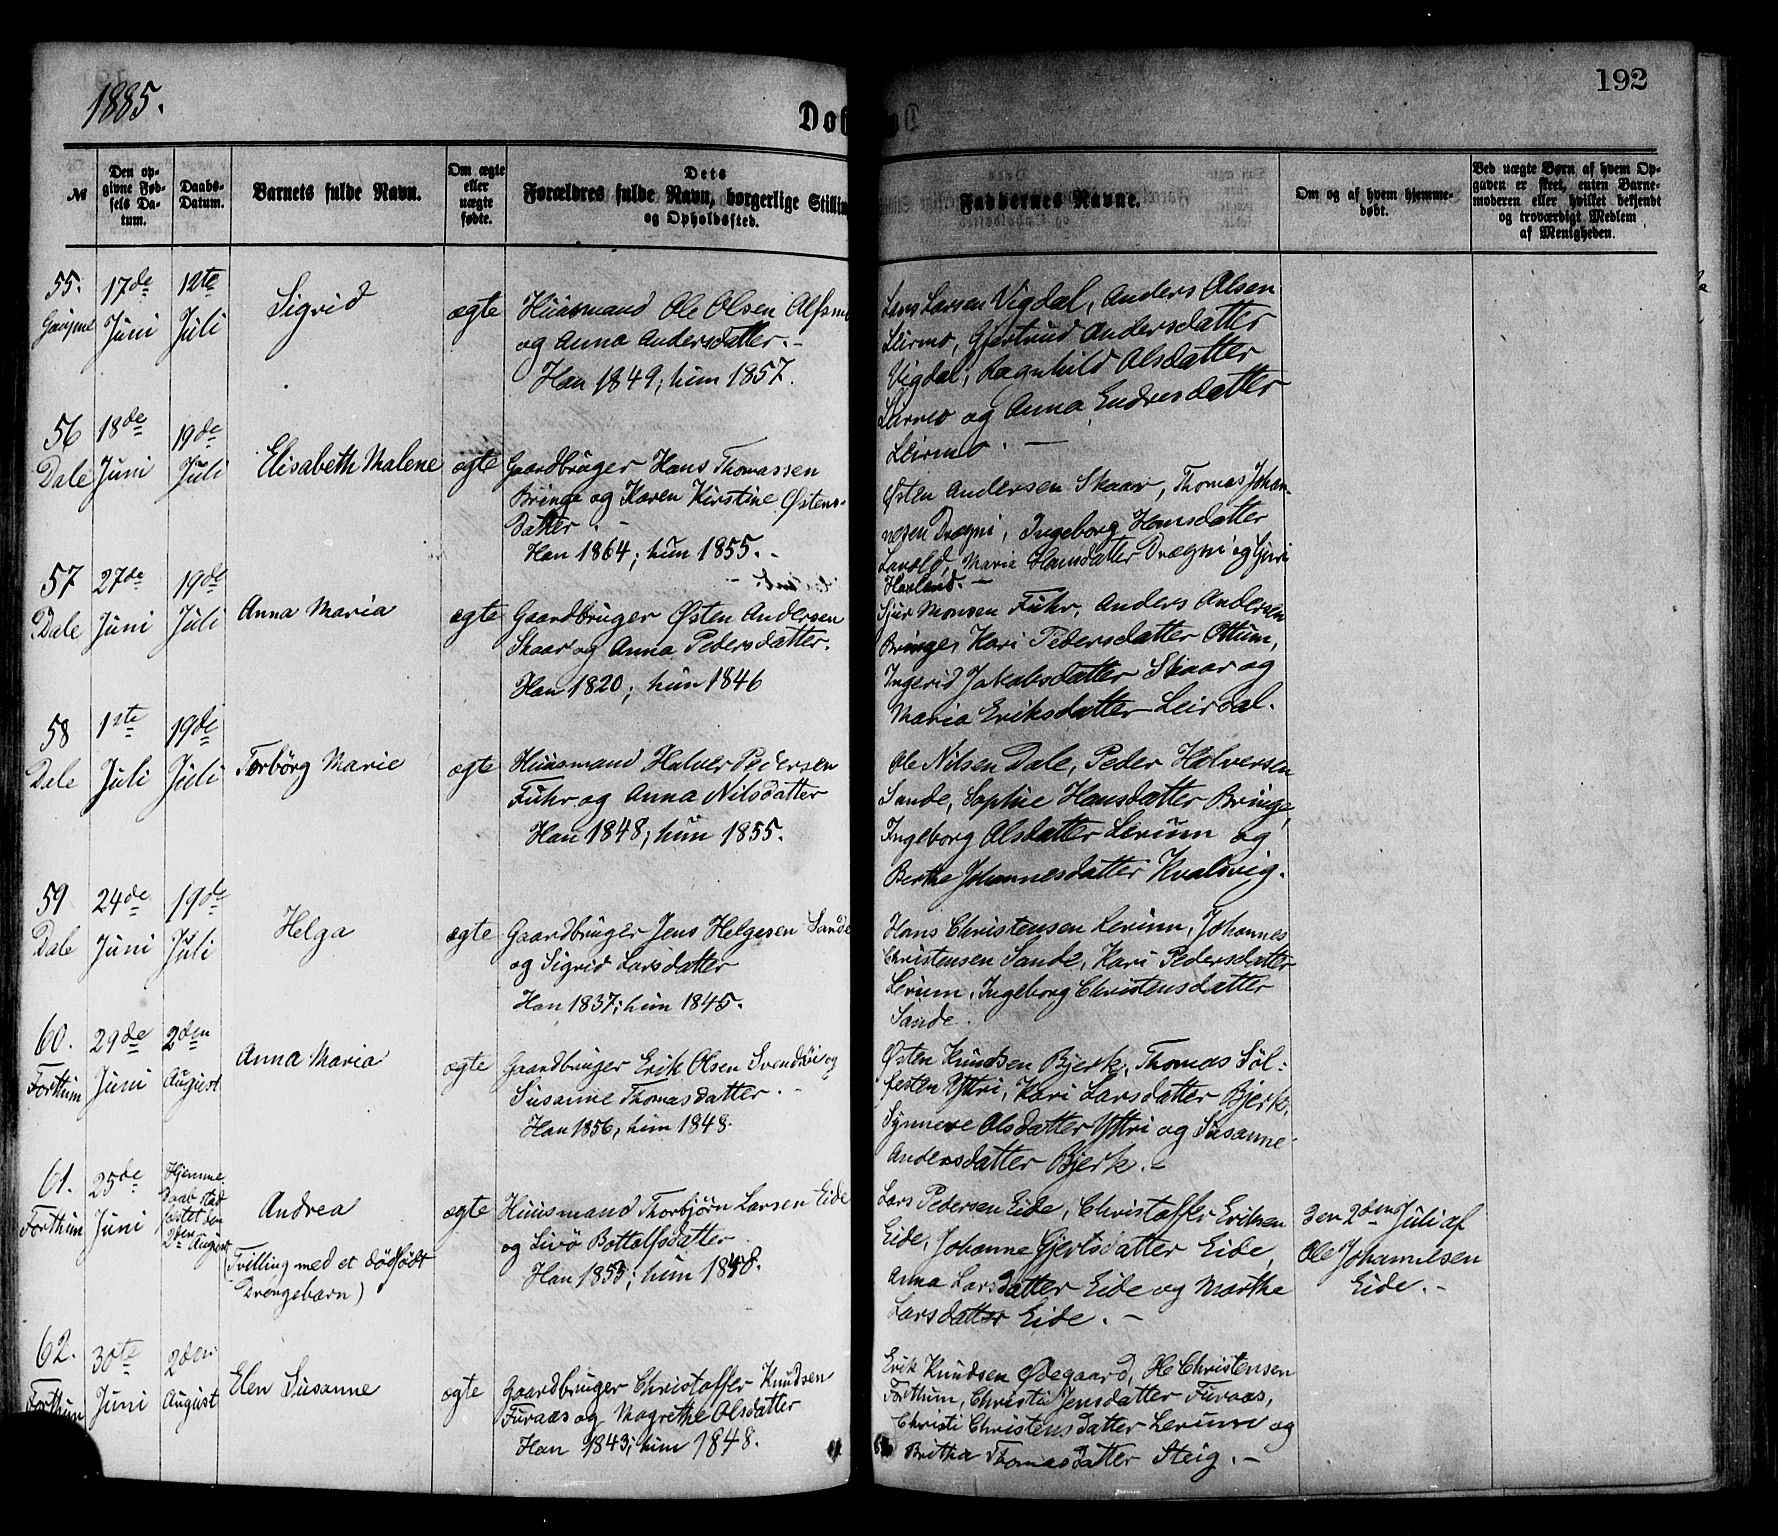 192
1885.
Døb
№
Den op-
givne Fød-
sels Da-
tum.
Daabs-
Datum.
Barnets fulde Navn.
Om ægte
eller
uægte
fødte.
Dets
Forældres fulde Navn, borgerlige Stillin
og Opholdssted.
Faddernes Navne.
Om og af hvem hjemme-
døbt.
Ved uægte Børn af hvem Op-
gaven er skeet, enten Barne-
moderen eller hvilket bekjendt
og troværdigt Medlem
af Menigheden.
55.
17de
Juni
12te
Juli
Sigrid
ægte
Huusmand Ole Olsen
og Anna Andersdatter. -
Han 1849; hun 1857.
Lars Larsen Vigdal, Anders Olsen
Leirmo, Gjertrud Andersdatter
Vigdal, Ragnhild Olsdatter
Leirmo og Anna Endresdatter
Leirmo. -
56
Dale
18de
Juni
19de
Juli
Elisabeth Malene
ægte
Gaardbruger Hans Thomassen
Bringe og Karen Kirstine Østens-
datter. -
Han 1864; hun 1855. -
Østen Andersen Skaar, Thomas Johan-
nesen Drægni, Ingeborg Hansdatter
Marie Hansdatter Drægni og
57
Dale
27de
Juni
19de
Juli
Anna Maria
ægte
Gaardbruger Østen Andersen
Skaar og Anna Pedersdatter.
Han 1820; hun 1846
Sjur Monsen Fuhr, Anders Andersen
Bringe, Kari Pedersdatter Ottum,
Ingerid Jakobsdatter Skaar og
Maria Eriksdatter Leirdal.
58
Dale
1ste
Juli
19de
Juli
Torborg Marie
ægte
Huusmand Halver Pedersen
Fuhr og Anna Nilsdatter
Han 1848; hun 1855.
Ole Nilsen Dale, Peder Halversen
Sande, Sophie Hansdatter Bringe,
Ingeborg Olsdatter Lerum og
Berthe Johannesdatter Kvalsvig.
59
Dale
24de
Juni
19de
Juli
Helga
ægte
Gaardbruger Jens Helgesen Sande
og Sigrid Larsdatter
Han 1837; hun 1845.
Hans Christensen Lerum, Johannes
Christensen Sande, Kari Pedersdatter
Lerum, Ingeborg Christensdatter
Sande.
60.
Forthun
29de
Juni
2den
August
Anna Maria
ægte
Gaardbruger Erik Olsen Svendsøi og
Susanne Thomasdatter. -
Han 1856; hun 1848.
Østen Knudsen Bjerk, Thomas Søl-
festen Yttri, Kari Larsdatter Bjerk,
Synneve Olsdatter Yttri og Susanne
Andersdatter Bjerk. -
61.
Forthun
25de
Juni
Hjemme
Daab stad
fæstet den
2den August
Andrea
(Tvilling med et dødfødt
Drengebarn)
ægte
Huusmand Thorbjørn Larsen Eide
og Livø Bottolfsdatter
Han 1855; hun 1848.
Lars Pedersen Eide, Christoffer Eriksen
Eide, Johanne Gjertsdatter Eide,
Anna Larsdatter Eide og Marthe
Larsdatter Eide. -
Den 2den Juli af
Ole Johannesen
Eide. -
62.
Forthun
30te
Juni
2den
August
Elen Susanne
ægte
Gaardbruger Christoffer Knudsen
Furaas og Magrethe Olsdatter
Han 1843; hun 1848.
Erik Knudsen Ødegaard, Ole Christensen
Forthun, Christi Jensdatter Furaas,
Christi Christensdatter Lerum og
Britha Thomasdatter Steig. -